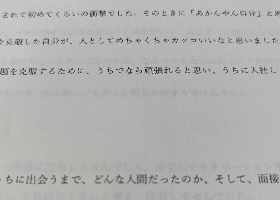 まれて初めてくらいの衝撃でした。そのときに「あかんやん自分」と
を克服した自分が、人としてめちゃくちゃカッコいいなと思いました
題を克服するために、うちでなら頑張れると思い、うちに入社し
うちに出会うまで、どんな人間だったのか、そして、面接